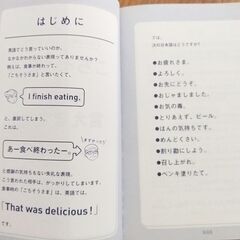 はじめに
英語でどう言っていいのか、
なかなかわからない表現ってありませんか?
例えば、食事が終わって、
「ごちそうさま」と言いたくて、
I finish eating.
と、直訳してしまう。
これは、
あー食べ終わったー。
と感謝の気持ちもない失礼な表現。
こう言われた相手は、がっかりしてしまいます。
食事時の「ごちそうさま」は、英語では、
「That was delicious!」
では、
次の日本語はどうですか?
●お疲れさま。
●よろしく。
●お先にどうぞ。
●おじゃましました。
●お気の毒。
●とりあえず、ビール。
●ほんの気持ちです。
●めんどくさい。
●割り勘にしよう。
●召し上がれ。
●ペンキ塗りたて。